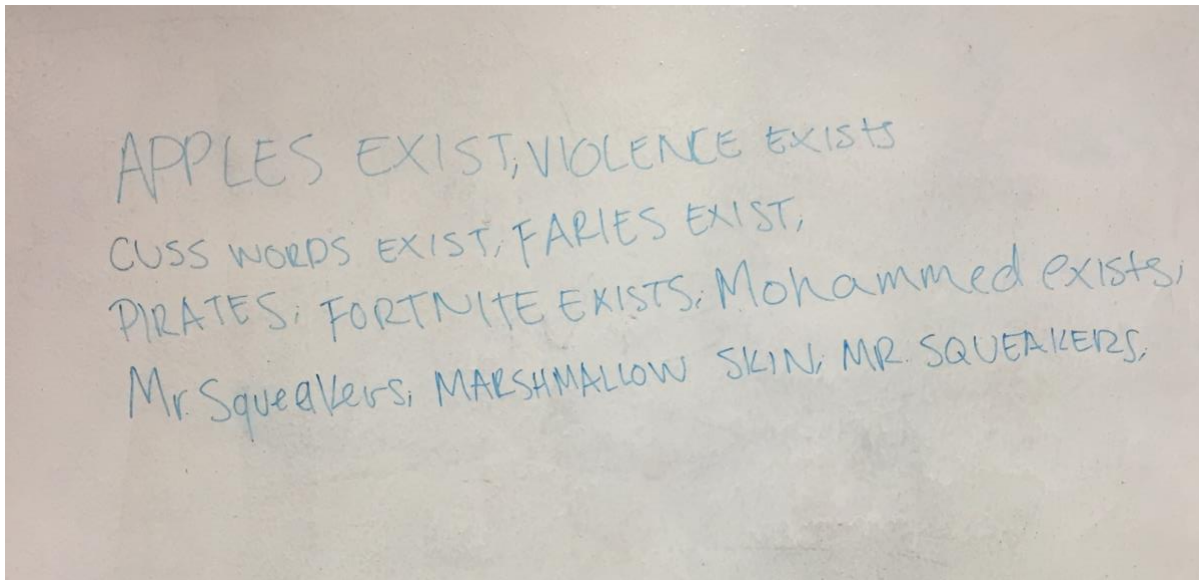 APPLES EXIST; VIOLENCE EXISTS
CUSS WORDS EXIST; FARIES EXIST;
PIRATES; FORTNITE EXISTS; Mohammed exists;
Mr. Squeakers; MARSHMALLOW SKIN; MR. SQUEAKERS;